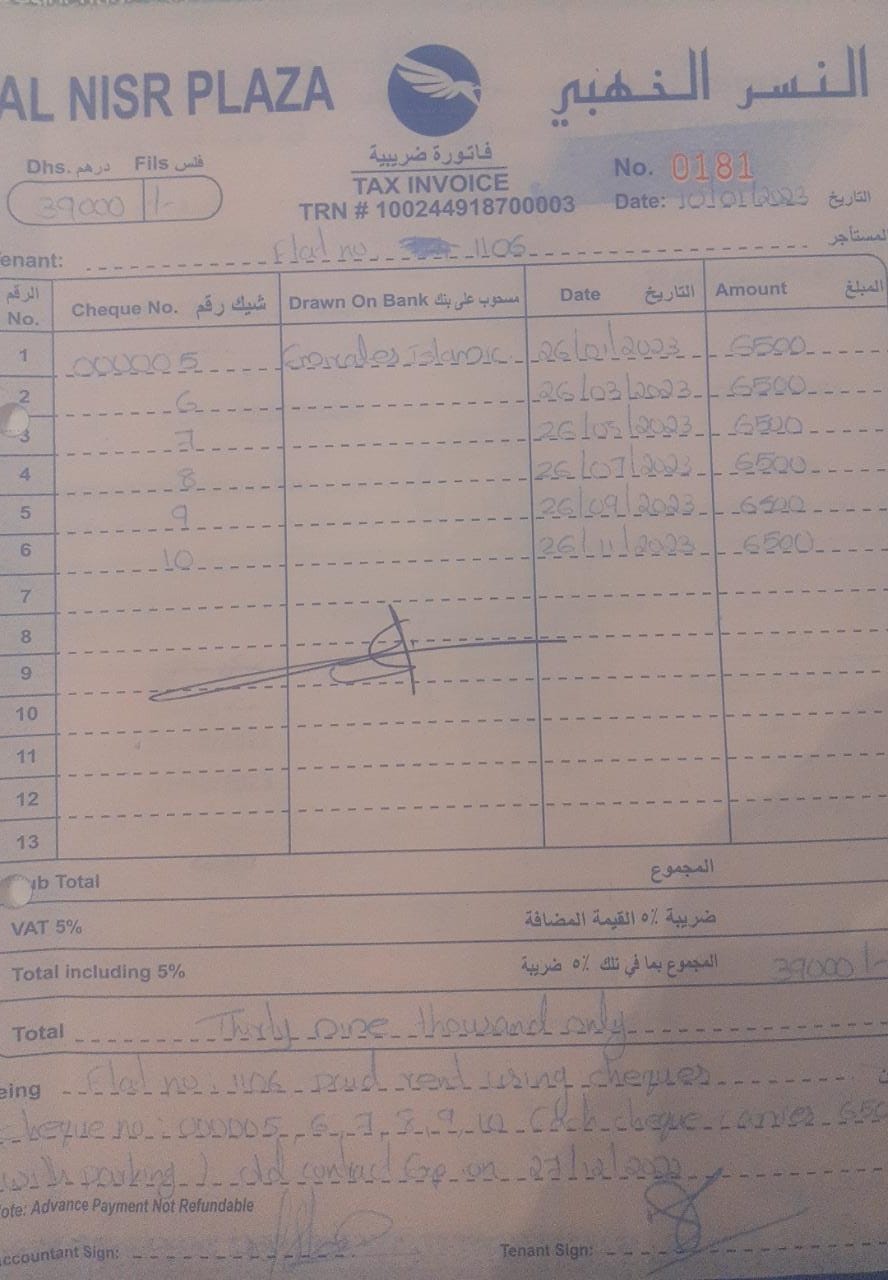 AL NISR PLAZA النسر الذهبي
Dhs. درهم Fils فلس
39000 /-
فاتورة ضريبية
TAX INVOICE
TRN # 100244918700003
No. 0181
Date: 10/01/2023 التاريخ
enant: Flat no 1106 المستأجر
الرقم No. Cheque No. شيك رقم Drawn On Bank مسحوب على بنك Date التاريخ Amount المبلغ
1 000005 Emirates Islamic 26/01/2023 6500
2 6 26/03/2023 6500
3 7 26/05/2023 6500
4 8 26/07/2023 6500
5 9 26/09/2023 6500
6 10 26/11/2023 6500
7
8
9
10
11
12
13
ub Total المجموع
VAT 5% ضريبة ٥% القيمة المضافة
Total including 5% المجموع بما في تلك ٥% ضريبة 39000/-
Total Thirty nine thousand only
eing Flat no: 1106 rent using cheques
cheque no: 000005, 6, 7, 8, 9, 10 each cheque carries 650
with parking) old contract Exp on 27/12/2022
ote: Advance Payment Not Refundable
ccountant Sign: Tenant Sign: